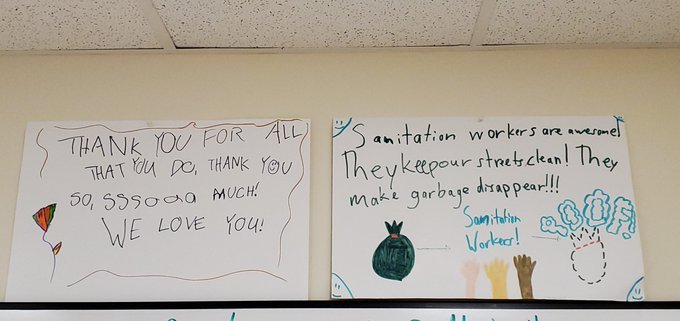 THANK YOU FOR ALL
THAT YOU DO, THANK YOU
SO, SSSOOOO MUCH!
WE LOVE YOU!
Sanitation workers are awesome!
They keep our streets clean! They
make garbage disappear!!!
Sanitation
Workers!
POOF